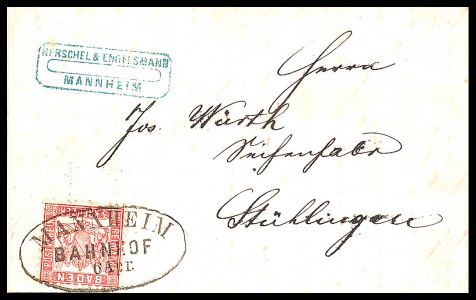 HERSCHEL & ENGELSMANN
MANNHEIM
Herrn
Jos. Würth
Seifenfabr
Stühlingen
MANNHEIM
BAHNHOF
6 ABE
BADEN